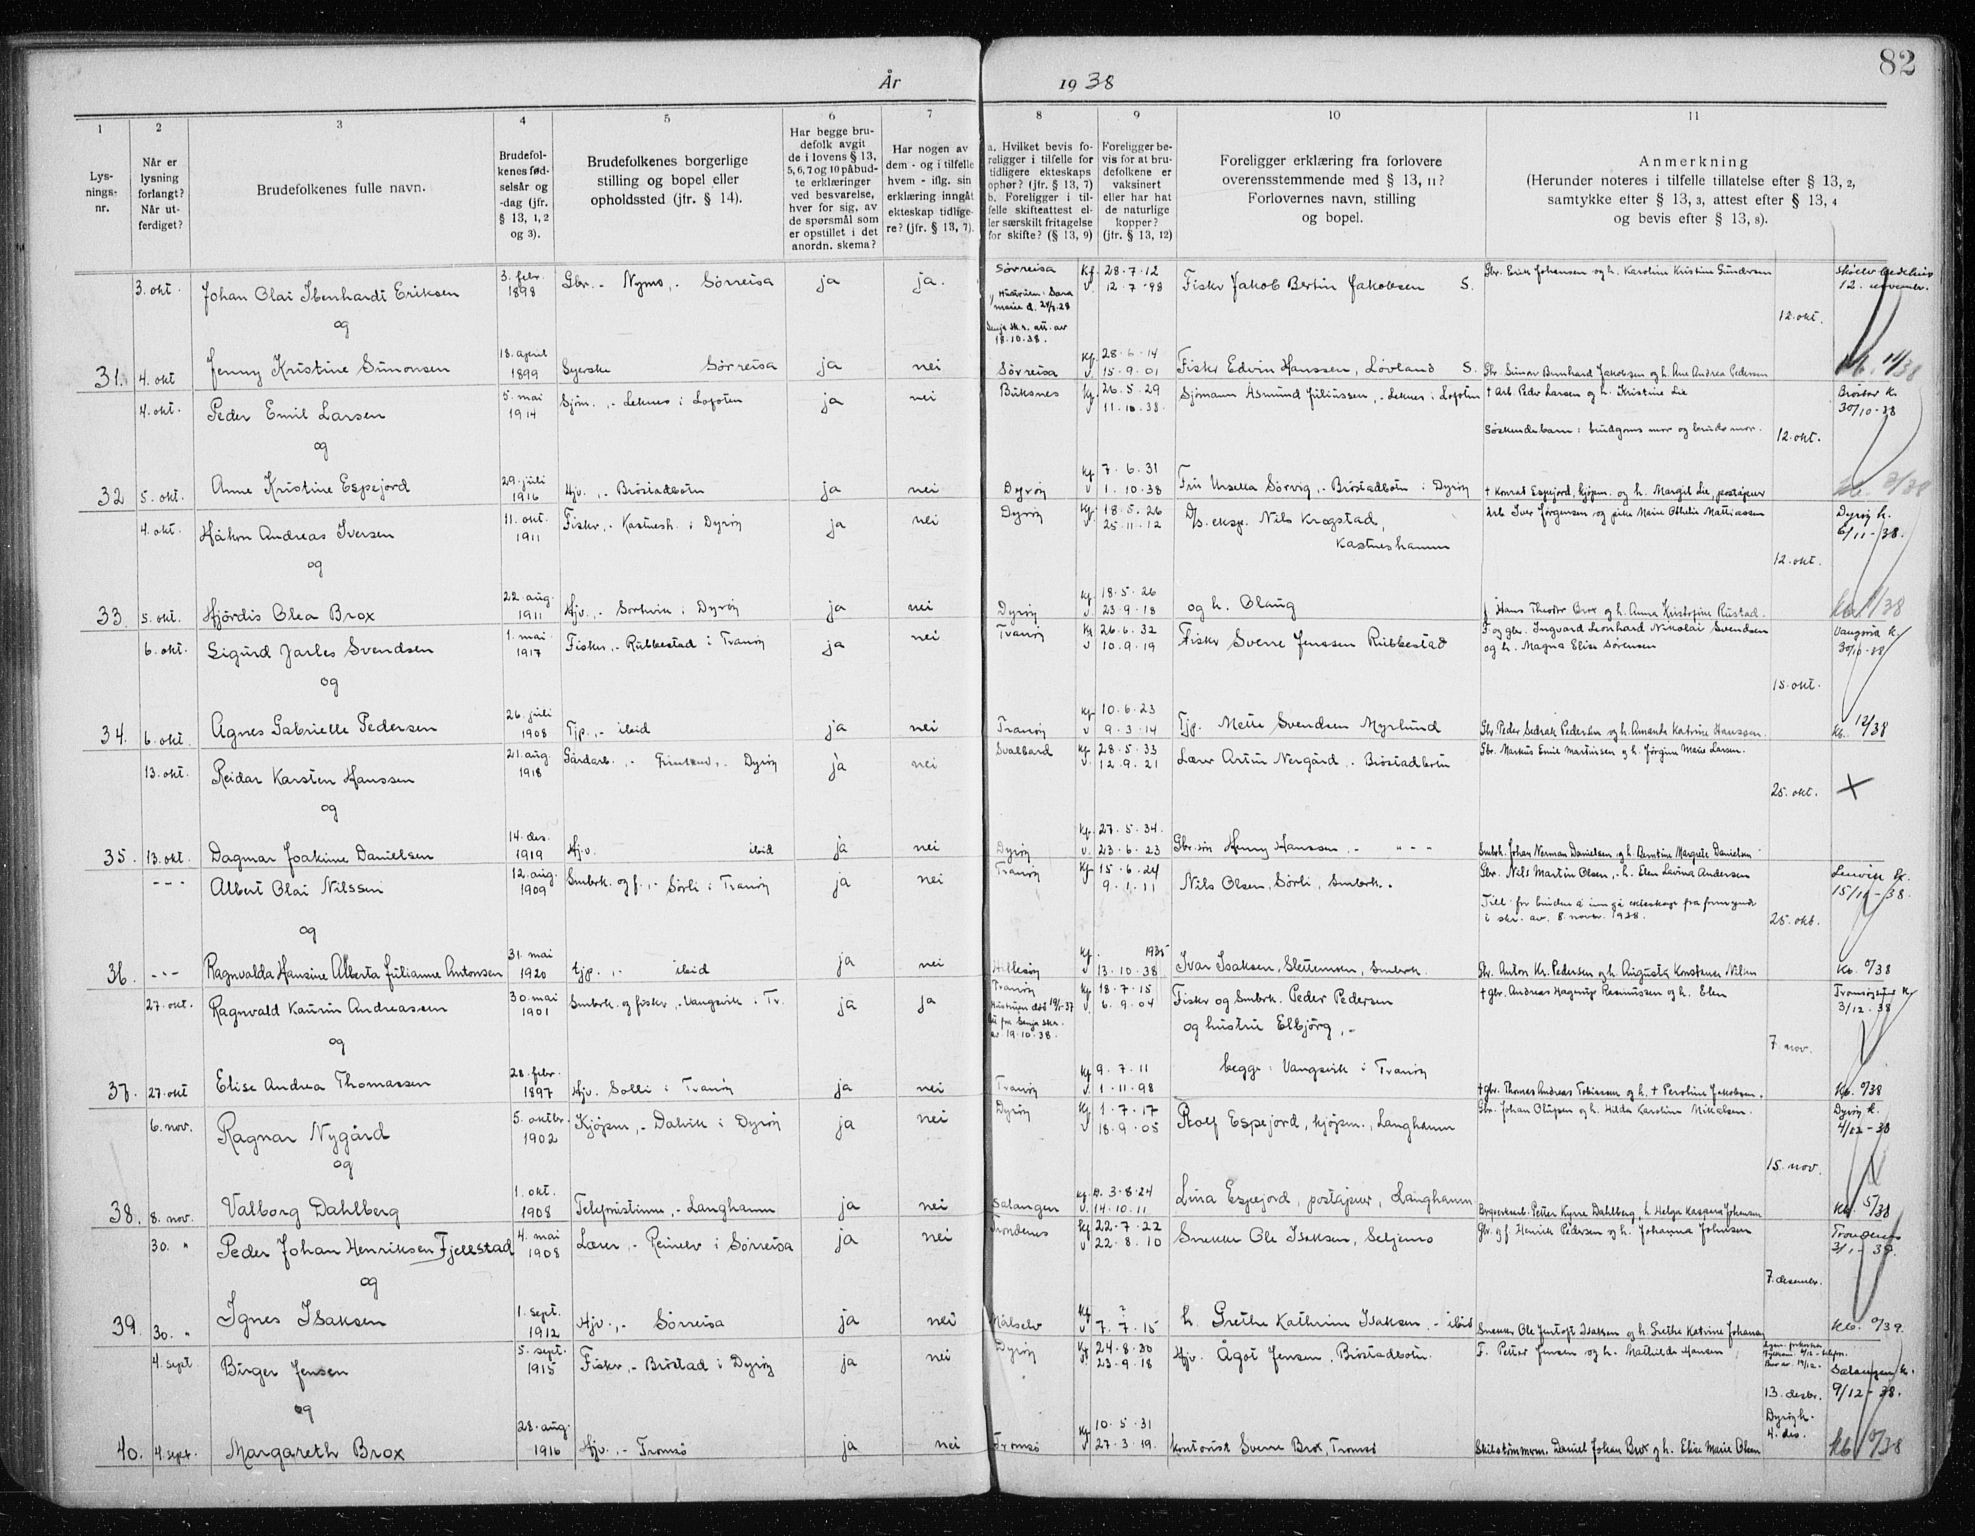 82
År 1938
1 2 3 4 5 6 7 8 9 10 11
Lysnings-nr.
Når er lysning forlangt? Når utferdiget?
Brudefolkenes fulle navn.
Brudefolkenes fødselsår og -dag (jfr. § 13, 1, 2 og 3).
Brudefolkenes borgerlige stilling og bopel eller opholdssted (jfr. § 14).
Har begge brudefolk avgit de i lovens § 13, 5, 6, 7 og 10 påbudte erklæringer ved besvarelse, hver for sig, av de spørsmål som er opstillet i det anordn. skema?
Har nogen av dem - og i tilfelle hvem - iflg. sin erklæring inngått ekteskap tidligere? (jfr. § 13, 7).
a. Hvilket bevis foreligger i tilfelle for tidligere ekteskaps ophør? (jfr. § 13, 7) b. Foreligger i tilfelle skifteattest eller særskilt fritagelse for skifte? (§ 13, 9)
Foreligger bevis for at brudefolkene er vaksinert eller har hat de naturlige kopper? (jfr. § 13, 12)
Foreligger erklæring fra forlovere overensstemmende med § 13, 11? Forlovernes navn, stilling og bopel.
Anmerkning (Herunder noteres i tilfelle tillatelse efter § 13, 2, samtykke efter § 13, 3, attest efter § 13, 4 og bevis efter § 13, 8).
3. okt. Johan Olai Ibenhardt Eriksen 3. febr. 1898 Gbr. - Nymo, - Sørreisa ja ja. Sørreisa Kf. 28-7-12 v. 12-7-98 Fiskr Jakob Bertin Jakobsen S. Gbr. Erik Johansen og h. Karoline Kristine Gundersen
12. november.
18.10.38.
og
12. okt.
31. 4. okt Jenny Kristine Simonsen 18. april 1899 Syerske Sørreisa ja nei Sørreisa Kf. 28-6-14 v. 15-9-01 Fiskr Edvin Hanssen, Løvland S. Gbr. Simon Bernhard Jakobsen og h. Ane Andrea Pedersen
4. okt. Peder Emil Larsen 5. mai 1914 Sjøm. ,- Leknes i Lofoten ja nei Buksnes Kf. 26-5-29 v 11-10-38. Sjømann Asmund Juliussen, - Leknes i Lofoten † Arb. Peder Larsen og h. Kristine Lie
Brøstad k. 30/10-38
og
Søskendebarn: brudgoms mor og bruds mor.
12. okt.
32 5. okt. Anne Kristine Espejord 29. juli 1916 Hjv. ,- Brøstadbotn ja nei Dyrøy Kf 7-6-31 v 1-10-38 Frk Ursella Sørvig, - Brøstadbotn i Dyrøy † Konrad Espejord, kjøpm. og h. Margit Lie, poståpner
4. okt. Håkon Andreas Iversen 11. okt. 1911 Fiskr ,- Kastnesh. i Dyrøy ja nei Dyrøy Kf. 18-5-26 v 25-11-12 D/s. eksp. Nils Krogstad, Kastneshamn Arb Iver Jørgensen og pike Marie Othelie Mattiassen
Dyrøy k. 6/11-38.
og
12. okt.
33. 5. okt. Hjördis Olea Brox 22. aug. 1911 Hjv. ,- Sortvik i Dyrøy ja nei Dyrøy Kf. 18-5-26 v. 23-9-18 og h. Olaug f. Hans Theodor Brox og h. Anna Kristofine Rustad.
6. okt. Sigurd Jarles Svendsen 1. mai 1917 Fiskr ,- Rubbestad i Tranøy ja nei Tranøy Kf 26-6-32 v 10-9-19 Fiskr Sverre Jenssen Rubbestad F. og gbr. Ingvard Leonhard Nikolai Svendsen og h. Magna Elise Sørensen
30/10-38
og
15. okt.
34. 6. okt. Agnes Gabrielle Pedersen 26. juli 1908 Tjp. ,- ibid ja nei Tranøy Kf 10-6-23 v 9-3-14 Tjp. Mette Svendsen Myrlund Gbr Peder Sedrak Pedersen og h. Amanda Katrine Hanssen. Kb. 12/38
13. okt. Reidar Karsten Hanssen 21. aug. 1918 Gårdarb. ,- Dyrøy ja nei Svalbard Kf 28-5-33 v. 12-9-21 Lærer Artur Nergård, - Brøstadbotn Gbr. Markus Emil Martinssen og h. Jørgine Marie Larsen.
og
25. okt.
35. 13. okt. Dagmar Joakime Danielsen 14. des. 1919 Hjv. ibid ja nei Dyrøy Kf. 27-5-34. v. 23-6-23 Gbr.søn Henny Hanssen, - " - " - Smbrk. Johan Norman Danielsen og h. Berntine Margrete Danielsen
--- Albert Olai Nilssen 12. aug. 1909 Smbrk. og f. ,- Sørli i Tranøy ja nei Tranøy Kf 15-6-24 9-1-11 Nils Olsen, Sørli, Smbrk. Gbr. Nils Martin Olsen, - h. Elen Lavina Andersen
Lenvik k.
Till. for bruden å inngå ekteskap fra
i skr. av. 8. novbr. 1938.
og
25. okt.
36. --- Ragnvalda Hansine Alberta Julianne Antonsen 31. mai 1920 tjp. ,- ibid ja nei Hillesøy Kf. 1935 v 13-10-38 Ivar Isaksen, Slettemoen, Smbrk. Gbr. Anton Kr. Pedersen og h. Augusta Konstanse Nilsen
27. okt. Ragnvald Kaurin Andreassen 30. mai 1901 Smbrk. og fiskr, - Vangsvik i Tr. ja ja Tranøy Kf 18-7-15 v 6-9-04 Fiskr og Smbrk. Peder Pedersen og hustru Elbjørg, - † gbr. Andreas Hagerup Rasmussen og h. Elen
3/12-38
av 19.10.38.
og
begge: Vangsvik i Tranøy
7. nov.
37. 27. okt Elise Andrea Thomassen 28. febr. 1897 Hjv. Solli i Tranøy ja nei Tranøy Kf 9-7-11 v 1-11-98 † gbr. Thomas Andreas Tobiassen og h. † Peroline Jakobsen.
6. nov. Ragnar Nygård 5. oktbr. 1902 Kjøpm ,- Dalvik i Dyrøy ja nei Dyrøy Kf 1-7-17 v 18-9-05 Rolf Espejord, kjøpm., Langhamn Gbr. Johan Olufsen og h. Hilda Karoline Mikalsen.
Dyrøy k. 4/12-38
og
15. nov.
38. 8. nov. Valborg Dahlberg 1. okt. 1908 Telefonistinne, - Langhamn ja nei Salangen Kf. 3-8-24 v. 14-10-11 Lina Espejord, poståpner, Langhamn Bergverksarb. Petter Kyrre Dahlberg, h Helga Kaspara Johansen Kb. 5/38
30. " Peder Johan Henriksen Fjellstad 4. mai 1908 Lærer ,- Reinelv i Sørreisa ja nei Trondenes Kf 22-7-22 v 22-8-10 Snekker Ole Isaksen, Seljemo Gbr. og f. Henrik Pedersen og h. Johanna Johnsen
Trondenes 3/1-39.
og
7. desembr.
39. 30. " Ignes Isaksen 1. sept. 1912 Hjv. ,- Sørreisa ja nei Målselv Kf ? v 7-7-15 h. Grethe Kathrin Isaksen, - ibid Snekker Ole Jentoft Isaksen og h. Grethe Katrine Johansen
4. sept Birger Jensen 5. sept. 1915 Fiskr ,- Brøstad i Dyrøy ja nei Dyrøy Kf 24-8-30 v 23-9-18 Hjv. Ågot Jensen, Brøstadbotn. F. Petter Jensen og h. Mathilde Hansen
Salangen k. 9/12-38.
og
13. desbr.
Dyrøy k. 4. des.
40. 4. sept. Margareth Brox 28. aug. 1916 Hjv. ,- Tromsø ja nei Tromsø Kf 10-5-31 v 27-3-19. kontorist Sverre Brox, Tromsø Daniel Johan Brox og h. Elise Marie Olsen